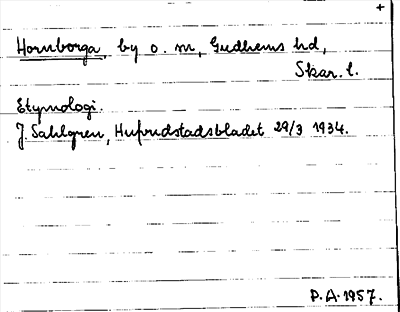 +
Hornborga, by o. sn, Gudhems hd,
Skar. l.
Etymologi.
J. Sahlgren, Hufvudstadsbladet 29/3 1934.
P.A. 1957.